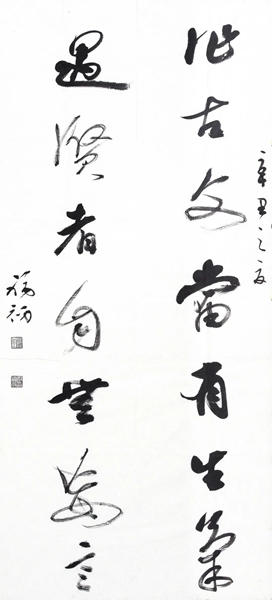 辛丑之夏
作古文當有生氣
遇賢者自無妄言